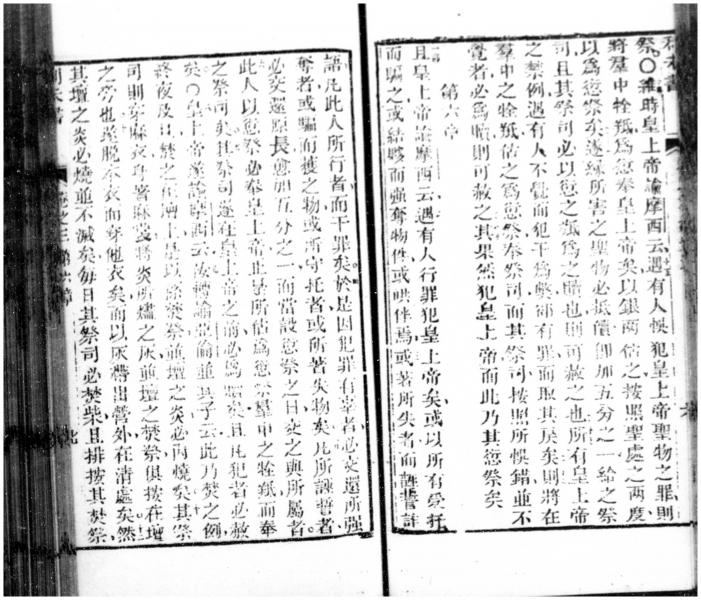 祭○維時皇上帝諭摩西云遇有人悞犯皇上帝聖物之罪則
將羣中牲羝爲愆奉皇上帝矣以銀兩估之按照聖處之兩度
以爲愆祭矣遂緣所害之聖物必抵償卽加五分之一給之祭
司且其祭司必以愆之羝爲之贖也則可赦之也所有皇上帝
之禁例遇有人不覺而犯干爲弊卽有罪而取其戾矣則將在
羣中之牲羝估之爲愆祭奉祭司而其祭司按照所悞錯並不
覺者必爲贖則可赦之其果然犯皇上帝而此乃其愆祭矣
第六章
且皇上帝諭摩西云遇有人行罪犯皇上帝矣或以所有受托
而騙之或結夥而强奪物件或哄伴焉或著所失者而誑誓詐
語凡此人所行者而干罪矣於是因犯罪有辜者必交還所强
奪者或騙而獲之物或所守托者或所著失物矣凡所誑誓者
必交還原長愈加五分之一而當設愆祭之日交之與所屬者
此人以愆祭必奉皇上帝此是所估爲愆祭羣中之牲羝而奉
之祭司矣且祭司遂在皇上帝之前必爲贖矣且凡犯者必赦
矣○皇上帝遂諭摩西云汝轉諭亞倫並其子云此乃焚之例
終夜及旦焚之在壇上是以爲焚祭並壇之炎必內燒矣其祭
司則穿麻衣身著麻裳將炎所燼之灰並壇之焚祭俱按在壇
之旁也遂脫本衣而穿他衣矣而以灰帶出營外在清處矣然
其壇之炎必燒並不滅矣每日其祭司必焚柴且排按其焚祭